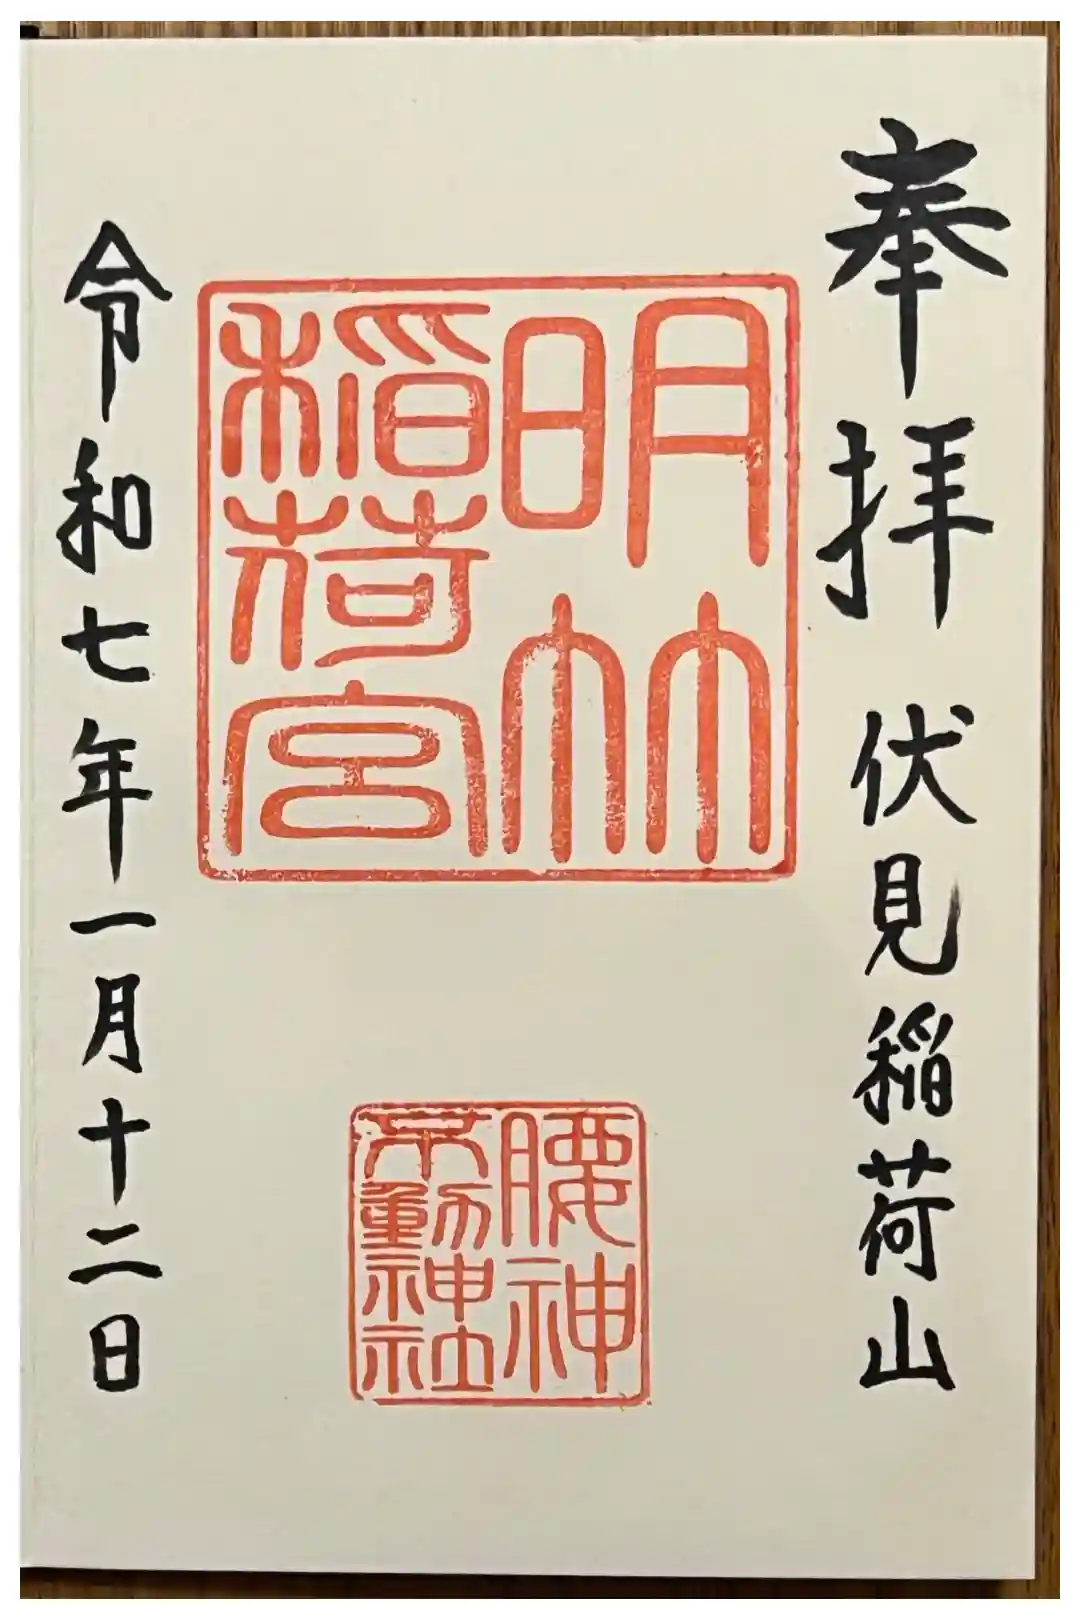 奉拝 伏見稲荷山
明竹
稲荷宮
腰神
不動神社
令和七年一月十二日